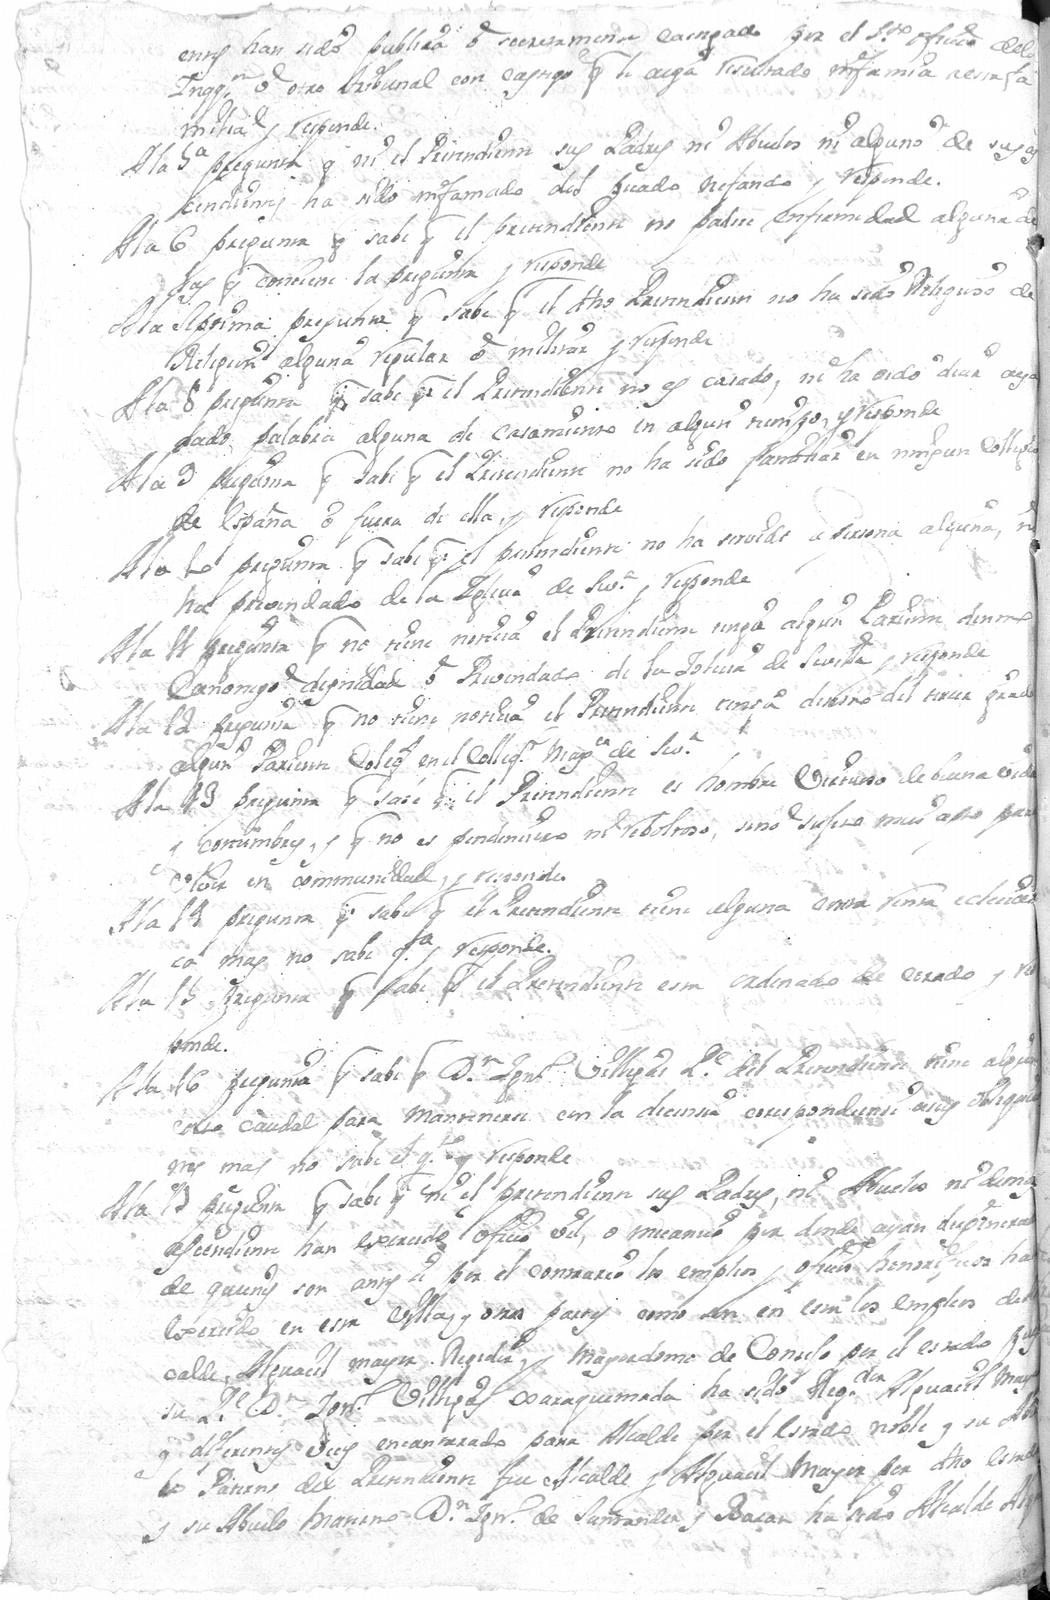 entes han sido publica ô secretamente castigado por el Sto oficio dela
Inqqn ô otro tribunal con castigo q le aiga resultado infamia a esta fa
milia y responde.
Ala 5a pregunta q ni el Pretendiente sus Padres ni Abuelos ni alguno de sus as
cendientes ha sido infamado del pecado nefando y responde.
Ala 6 pregunta q sabe q el pretendiente no padece enfermedad alguna de
las q contiene la pregunta y responde
Ala Septima pregunta q sabe q el dho Pretendiente no ha sido Religioso de
Religion alguna regular ô militar y responde
Ala 8 pregunta q sabe q el Pretendiente no es casado, ni ha oido decir aya
dado palabra alguna de casamiento en algun tiempo, y responde
Ala 9 pregunta q sabe q el Pretendiente no ha sido familiar en ningun Collegio
de España ô fuera de ella, y responde
Ala 10 pregunta q sabe q el pretendiente no ha servido a persona alguna, ni
ha prevendado de la Iglesia de Seva y responde
Ala 11 pregunta q no tiene noticia el Pretendiente tenga algun Pariente dentro
Canonigo dignidad ô Prevendado de la Iglesia de Sevilla y responde
Ala 12 pregunta q no tiene noticia el Pretendiente tenga dentro del tercer grado
algun Pariente Coleg en el Collego Mayor de Seva
Ala 13 pregunta q sabe q el Pretendiente es hombre Virtuoso de buena vida
y costumbres, y q no es pendenciero ni reboltoso, sino sujeto mui apto para
vivir en communidad, y responde
Ala 14 pregunta q sabe q el Pretendiente tiene alguna corta renta eclesiasti
ca mas no sabe qta y responde.
Ala 15 Pregunta q sabe q el Pretendiente esta ordenado de corona y res
ponde.
Ala 16 pregunta q sabe q Dn Igno Villegas Pe del Pretendiente tiene algun
corto caudal para mantenerse con la decencia correspondiente a sus obligacio
nes mas no sabe el qto y responde
Ala 17 pregunta q sabe q ni el pretendiente sus Padres, ni Abuelos ni demas
ascendientes han exercido oficio vil, o mecanico por donde ayan degenerado
de quienes son antes si por el contrario los empleos y oficios honorificos ha
exercido en esta Villa, y otras partes como son en esta los empleos de Al
calde, Alguacil mayor Regidor, y Mayordomo de Consejo por el estado
su Pe Dn Igno Villegas Xaraquemada ha sido Regdor Alguacil Mayor
y diferentes veces encantarado para Alcalde por el Estado noble y su Abue
lo Paterno del Pretendiente fue Alcalde y Alguacil Mayor por dho estado
y su Abuelo Materno Dn Igno de Santander y Bazan ha sido Alcalde